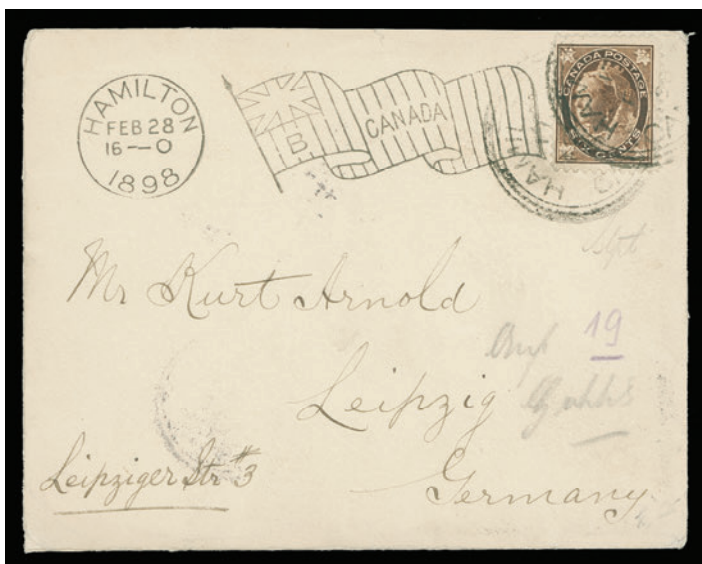 HAMILTON
FEB 28
16—0
1898
B
CANADA
CANADA POSTAGE
SIX CENTS
Mr Kurt Arnold
19
Leipzig
Leipziger Str #3
Germany